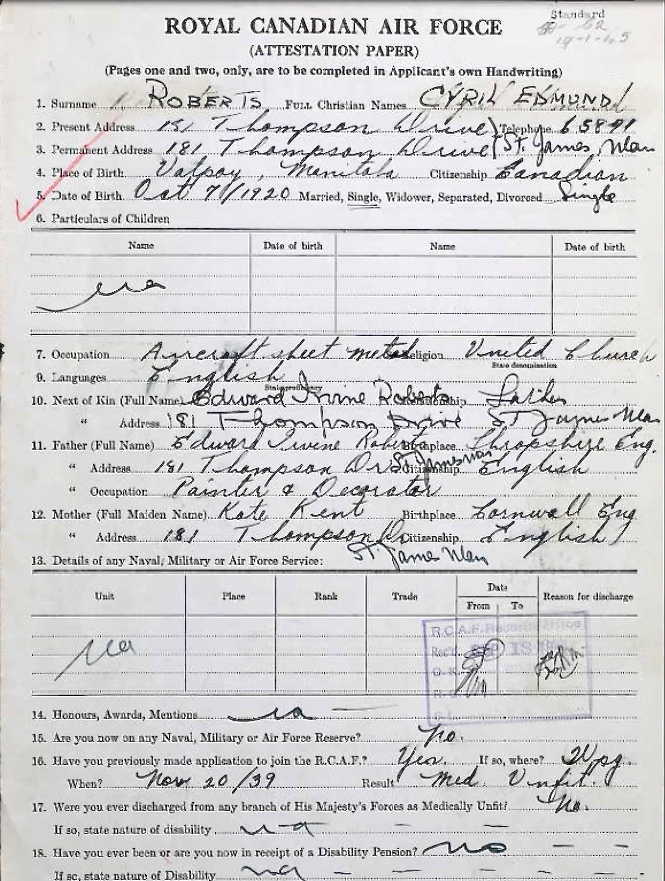 Standard
19-1-45
ROYAL CANADIAN AIR FORCE
(ATTESTATION PAPER)
(Pages one and two, only, are to be completed in Applicant's own Handwriting)
1. Surname ROBERTS Full Christian Names CYRIL EDMUND
2. Present Address 181 Thompson Drive) Telephone 65891
3. Permanent Address 181 Thompson Drive (St. James, Man
4. Place of Birth Manitoba Citizenship Canadian
5. Date of Birth Oct 7/1920 Married, Single, Widower, Separated, Divorced Single
6. Particulars of Children
Name Date of birth Name Date of birth
na
7. Occupation Aircraft sheet metal Religion United Church
State denomination
9. Languages English
State proficiency
10. Next of Kin (Full Name) Edward Irvine Roberts Relationship Father
" Address 181 Thompson Drive St James Man
11. Father (Full Name) Edward Irvine Roberts Birthplace Shropshire Eng.
" Address 181 Thompson Dr St James Man Citizenship English
" Occupation Painter & Decorator
12. Mother (Full Maiden Name) Kate Kent Birthplace Cornwall Eng
" Address 181 Thompson Dr. Citizenship English
St. James Man
13. Details of any Naval, Military or Air Force Service:
Unit Place Rank Trade Date Reason for discharge
From To
R.C.A.F. Records Office
Rec'd. SEP 18
na
14. Honours, Awards, Mentions na —
15. Are you now on any Naval, Military or Air Force Reserve? no.
16. Have you previously made application to join the R.C.A.F.? Yes. If so, where? Wpg.
When? Nov 20/39 Result Med. Unfit.
17. Were you ever discharged from any branch of His Majesty's Forces as Medically Unfit? No.
If so, state nature of disability na — — —
18. Have you ever been or are you now in receipt of a Disability Pension? no — —
If so, state nature of Disability na — — — — —